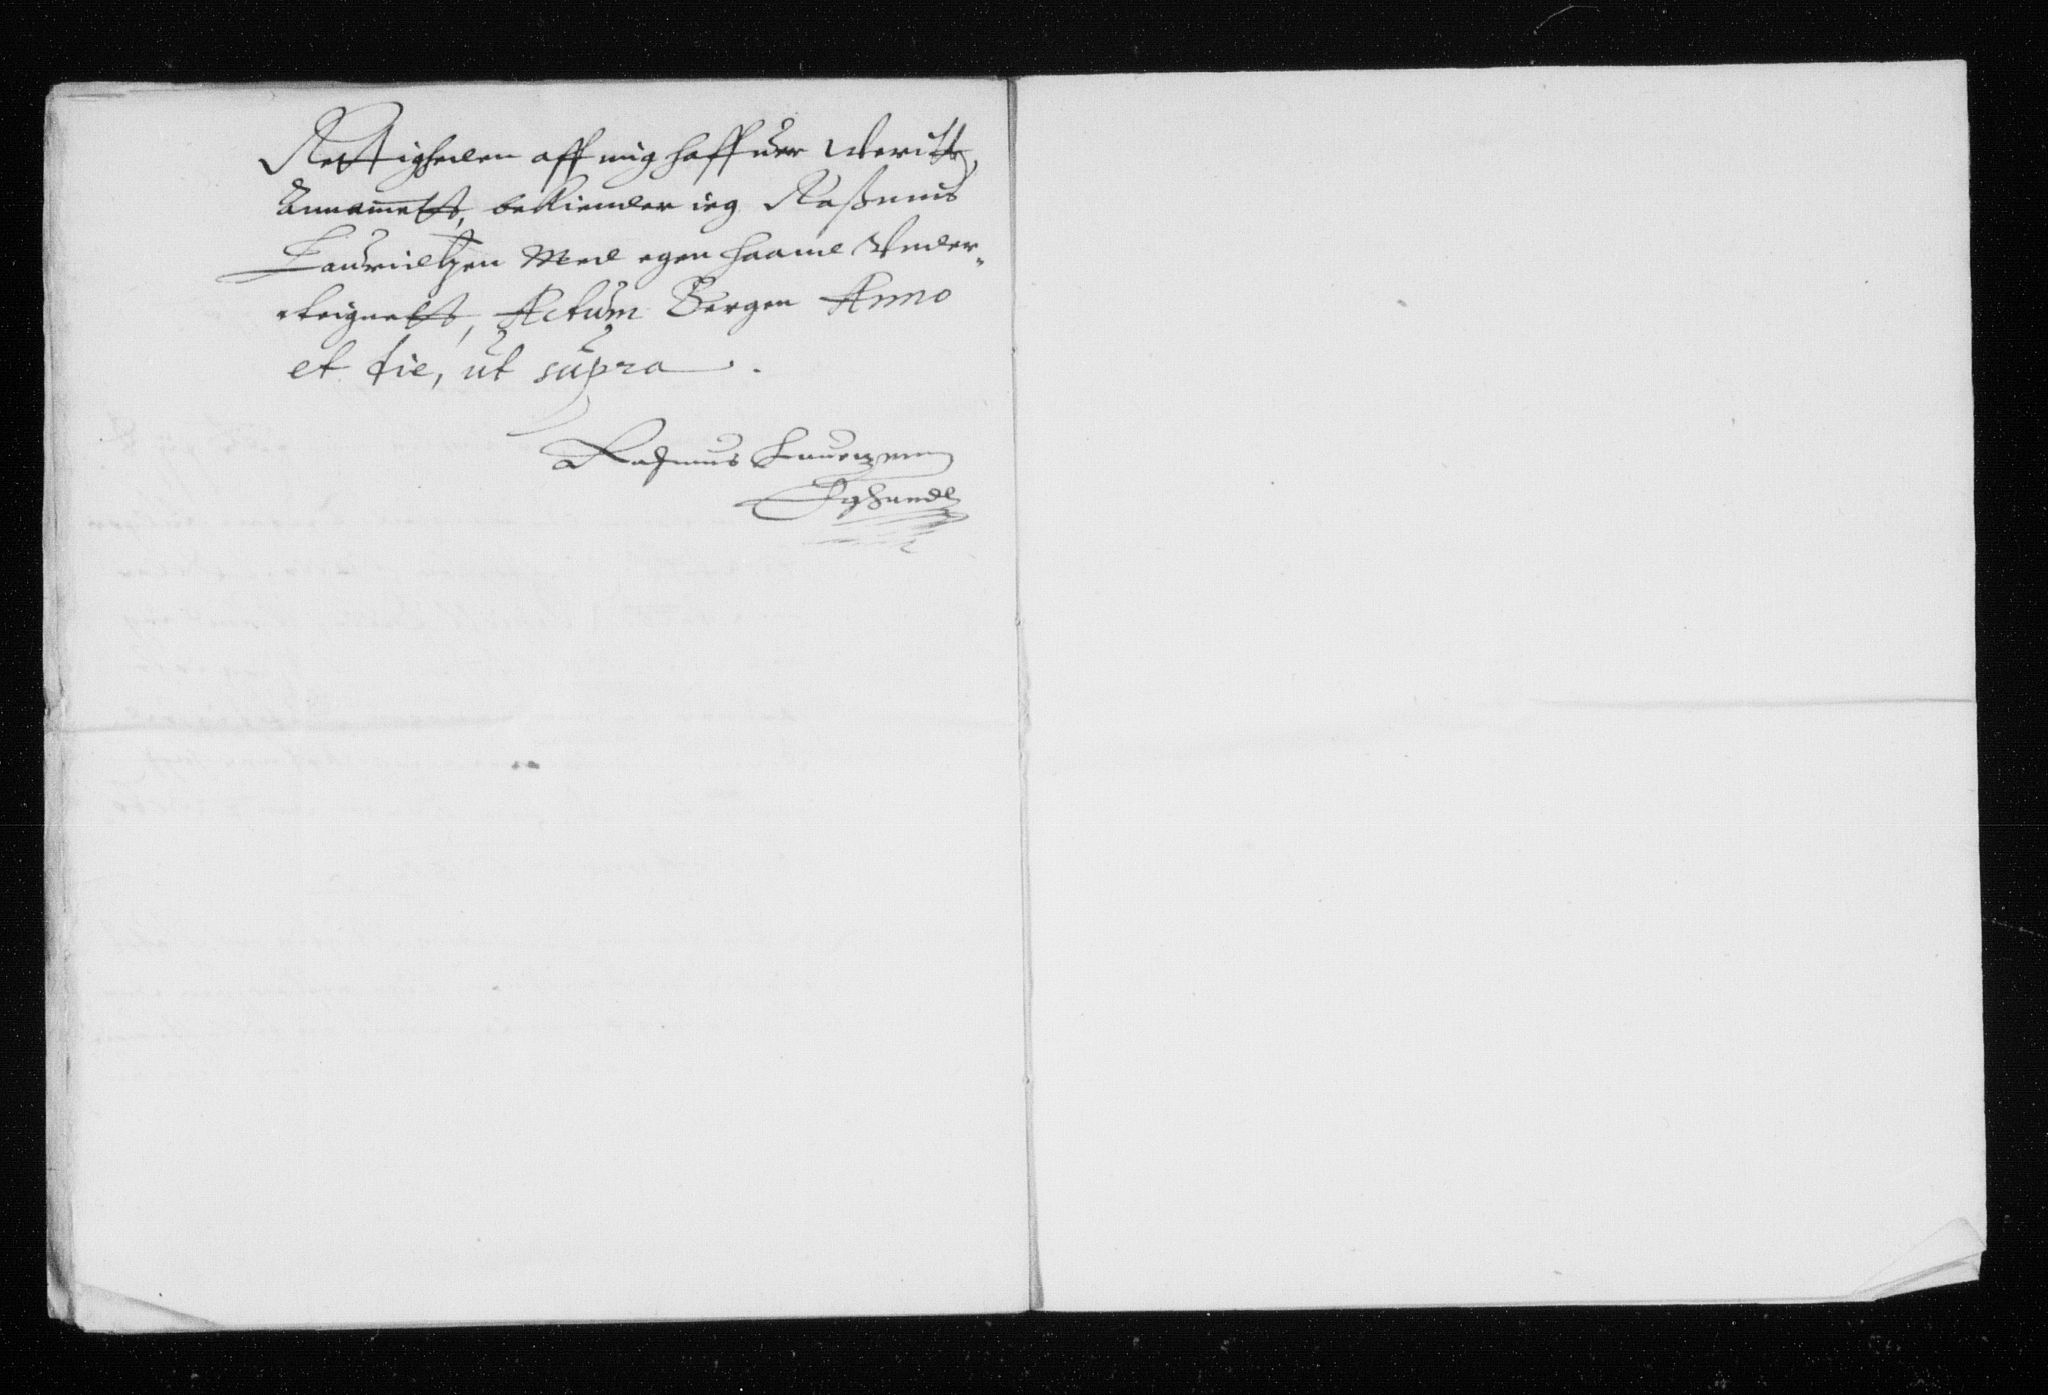 Rettigheden aff mig haffuer Werit
Annamet, bekiender ieg Raßmus
Lauridtzen Med egen haand Vnder-
teignet, Actum Bergen Anno
et die, ut supra.
Rasmus Lauritzenn
Egh handt